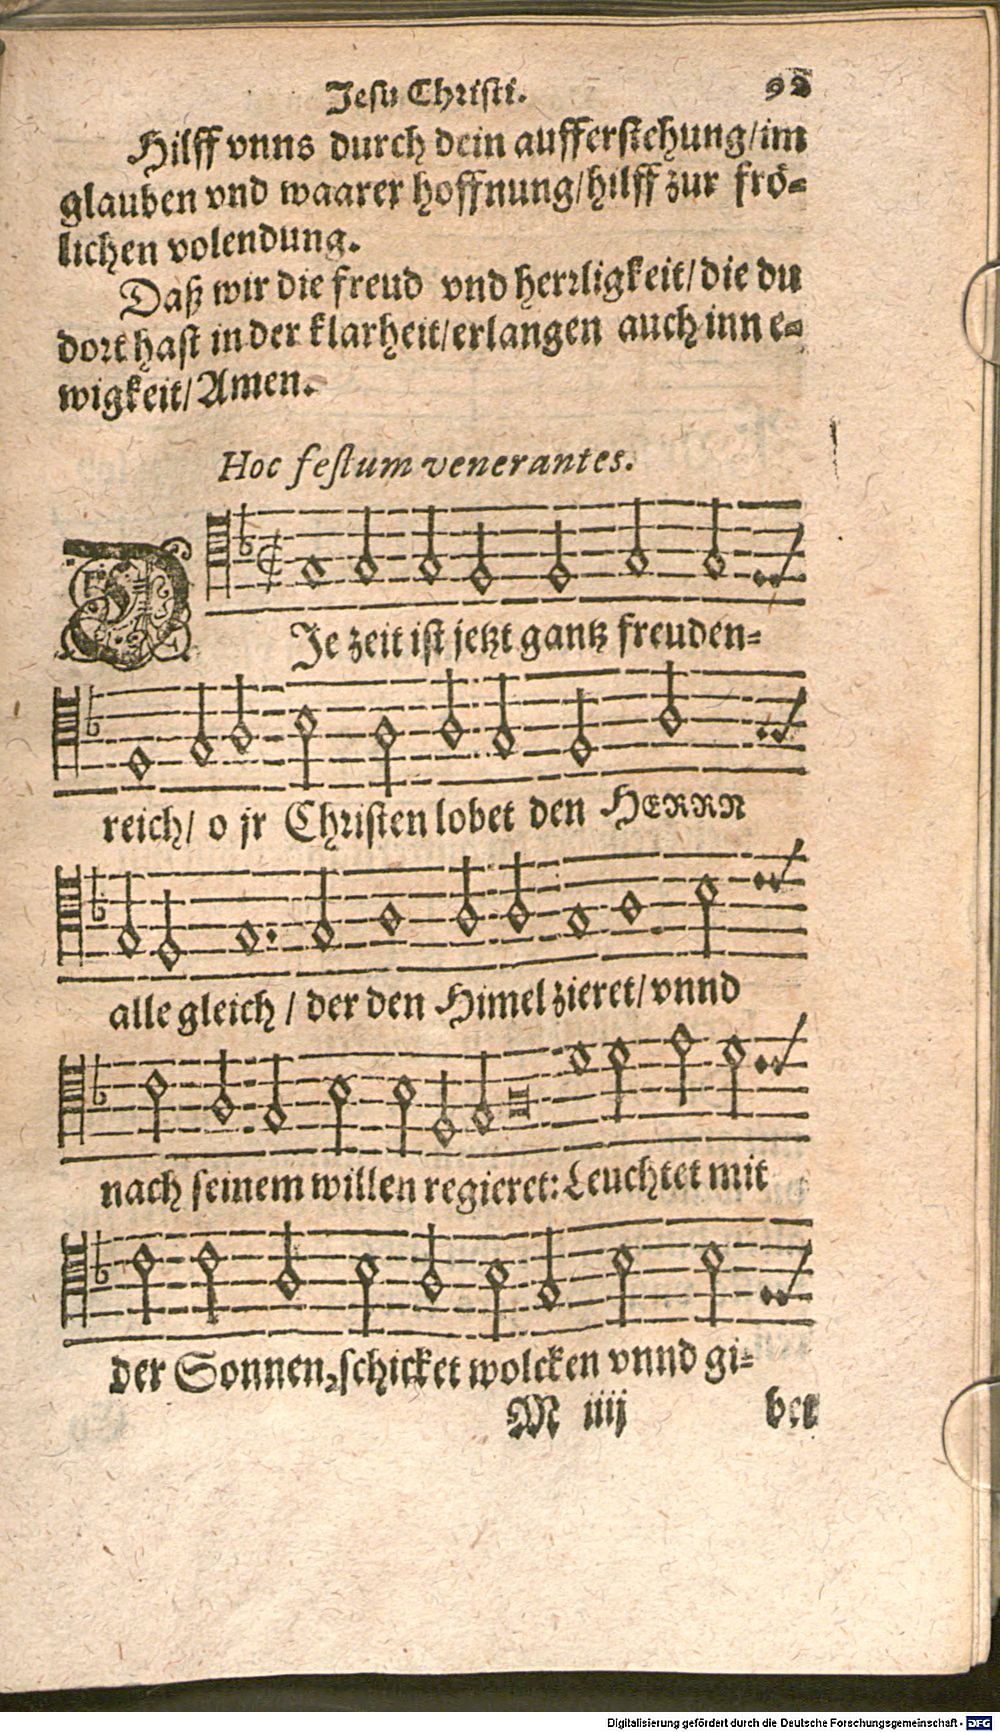 Jesu Christi. 92
Hilff vnns durch dein aufferstehung/im
glauben vnd waarer hoffnung/hilff zur frö-
lichen volendung.
Daß wir die freud vnd herrligkeit/die du
dort hast in der klarheit/erlangen auch inn e-
wigkeit/Amen.
Hoc festum venerantes.
DJe zeit ist jetzt gantz freuden-
reich/ o jr Christen lobet den HERRN
alle gleich / der den Himel zieret/vnnd
nach seinem willen regieret: Leuchtet mit
der Sonnen, schicket wolcken vnnd gi-
M iiij bet
Digitalisierung gefördert durch die Deutsche Forschungsgemeinschaft - DFG